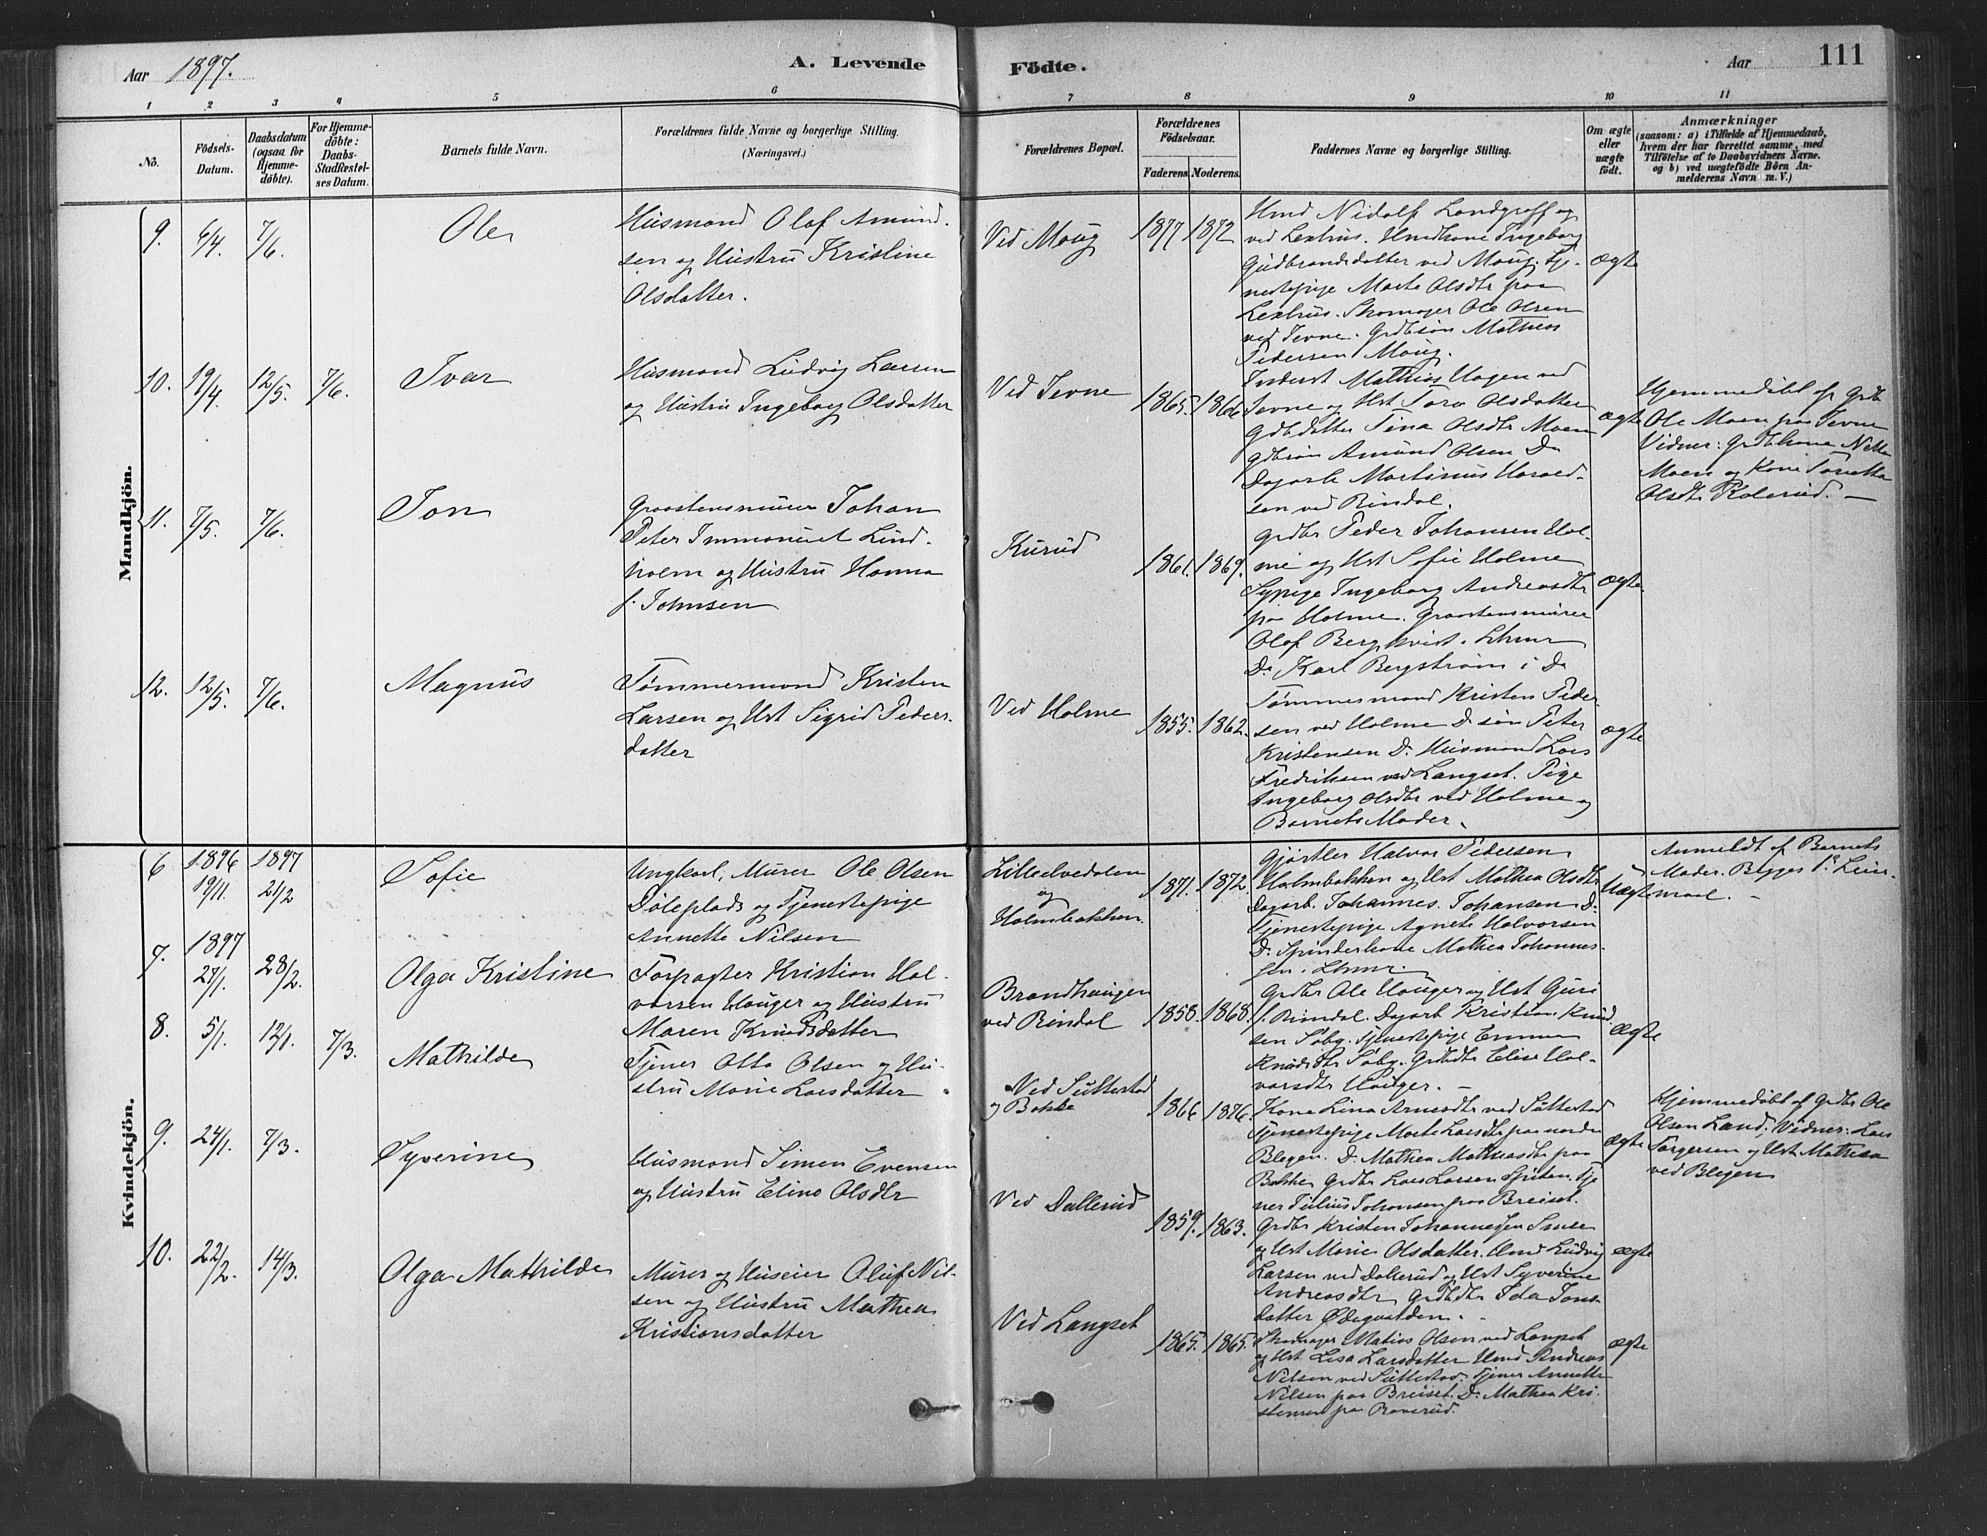 Aar 1897.
A. Levende Fødte.
Aar
111
1 2 3 4 5 6 7 8 9 10 11
No.
Fødsels-
Datum.
Daabsdatum
(ogsaa for
Hjemme-
døbte).
For Hjemme-
døbte:
Daabs-
Stadfæstel-
ses Datum.
Barnets fulde Navn.
Forældrenes fulde Navne og borgerlige Stilling.
(Næringsvei.)
Forældrenes Bopæl.
Forældrenes
Fødselsaar.
Faderens Moderens.
Faddernes Navne og borgerlige Stilling.
Om ægte
eller
uægte
født.
Anmærkninger
(saasom: a) i Tilfælde af Hjemmedaab,
hvem der har forrettet samme, med
Tilføielse af to Daabsvidners Navne.
og b) ved uægtefødte Børn An-
melderens Navn m. V.)
Mandkjøn.
9. 6/4. 7/6. Ole
Husmand Olaf Amund-
sen og Hustru Kristine
Olsdatter.
Ved Moug 1877 1872
Hmd Nidolf Landgraff og
ved Lexhus. Hmdkone Ingeborg
Gudbrandsdatter ved Moug. Tje-
nestepige Marte Olsdtr paa
Lexhus. Skomager Ole Olsen
ved Jevne. Grdbsøn Mathias
Pedersen Moug.
ægte
10. 19/4. 12/5. 7/6. Ivar
Husmand Ludvig Larsen
og Hustru Ingeborg Olsdatter
Ved Jevne 1865. 1866
Inderst Mathias Hagen ved
Jevne og Hst Olsdatter
Gdbdatter Tina Olsdtr Moen
gdbsøn Amund Olsen Do
Dagarb Martinus Harald-
sen ved Rindal.
ægte
Hjemmedøbt af Grdb
Ole Moen paa Jevne
Vidner: Grdbkone
Moen og Kone
Olsdtr Kolerud. —
11. 7/5. 7/6. Jon
Graastensmurer Johan
Peter Immanuel Lind-
holm og Hustru Hanna
f. Johnsen
Kurud 1861. 1869.
grdbr Peder Johansen Hol-
me og Hst Sofie Holme
Sypige Ingeborg Andreasdtr
paa Holme. Graastensmurer
Olof Bergkvist. Lhmr
Do Karl Bergstrøm i Do
ægte
12. 12/5. 7/6. Magnus
Tømmermand Kristen
Larsen og Hst Sigrid Peders-
datter
Ved Holme 1855. 1862.
Tømmermand Kristen Peder-
sen ved Holme Do søn Peter
Kristensen Do. Husmand Lars
Fredriksen ved Langset. Pige
Ingeborg Olsdtr ved Holme og
Barnets Moder.
ægte
Kvindekjøn.
6 1896 19/11. 1897 21/2 Sofie
Ungkarl, Murer Ole Olsen
Døleplads og Tjenestepige
Annette Nilsen
Lilleelvedalen
og
Holmbakken. 1871. 1872.
Gjørtler Halvor Pedersen
Holmbakken og Hst Mathea Olsdtr
Dagarb. Johannes Johansen Do
Tjenestepige Agnete Halvorsen
Do. Spinderkone Mathea Johannes-
sen i Lhmr.
Uægte
Anmeldt af Barnets
Moder. Begges 1ste Leier-
maal. —
7. 1897 27/1. 28/2. Olga Kristine
Forpagter Kristian Hal-
vorsen Hauger og Hustru
Maren Knudsdatter
Brandhaugen
ved Rindal 1858. 1868.
Grdbr Ole Hauger og Hst Guri
f. Rindal. Dagarb Kristian Knud
sen Søby. Tjenestepige Emma
Knudsdtr Søby. Grdbdtr Elise Hal-
vorsdtr Hauger. —
ægte
8. 5/1. 12/1. 7/3. Mathilde
Tjener Otto Olsen og Hu-
stru Marie Larsdatter
Ved Suttestad
og Bakke 1866 1876.
Kone Lina Arnesdtr ved Suttestad
Tjenestepige Marte Larsdtr paa nordre
Blegen. Do Mathea Mathiasdtr paa
Bakke Grdbr Lars Larsen Tje
ner Julius Johansen paa Breiset.
ægte
Hjemmedøbt af Grdbr Ole
Olsen Land; Vidner: Lars
Torgersen og Hst Mathea
ved Blegen
9. 24/1. 7/3. Syverine
Husmand Simen Evensen
og Hustru Eline Olsdtr
Ved Dallerud 1859. 1863.
Grdbr Kristen Johannessen
og Hst Marie Olsdatter. Hmd Ludvig
Larsen ved Dallerud og Hst Syverine
Andreasdtr Grdbdtr Ida Jons-
datter Ødegaarden.
ægte
10. 22/2. 14/3. Olga Mathilde
Murer og Huseier Oluf Nil-
sen og Hustru Mathea
Kristiansdatter
Ved Langset 1865. 1865.
Skomager Matias Olsen ved Langset
og Hst Lisa Larsdatter Hmd Andreas
Nilsen ved Suttestad. Tjener Annette
Nilsen paa Breiset. Do Mathea Kri-
stensen paa
ægte